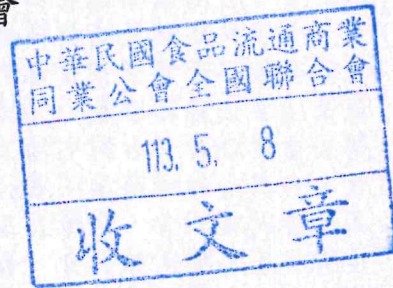 會
中華民國食品流通商業
同業公會全國聯合會
113. 5. 8
收文章